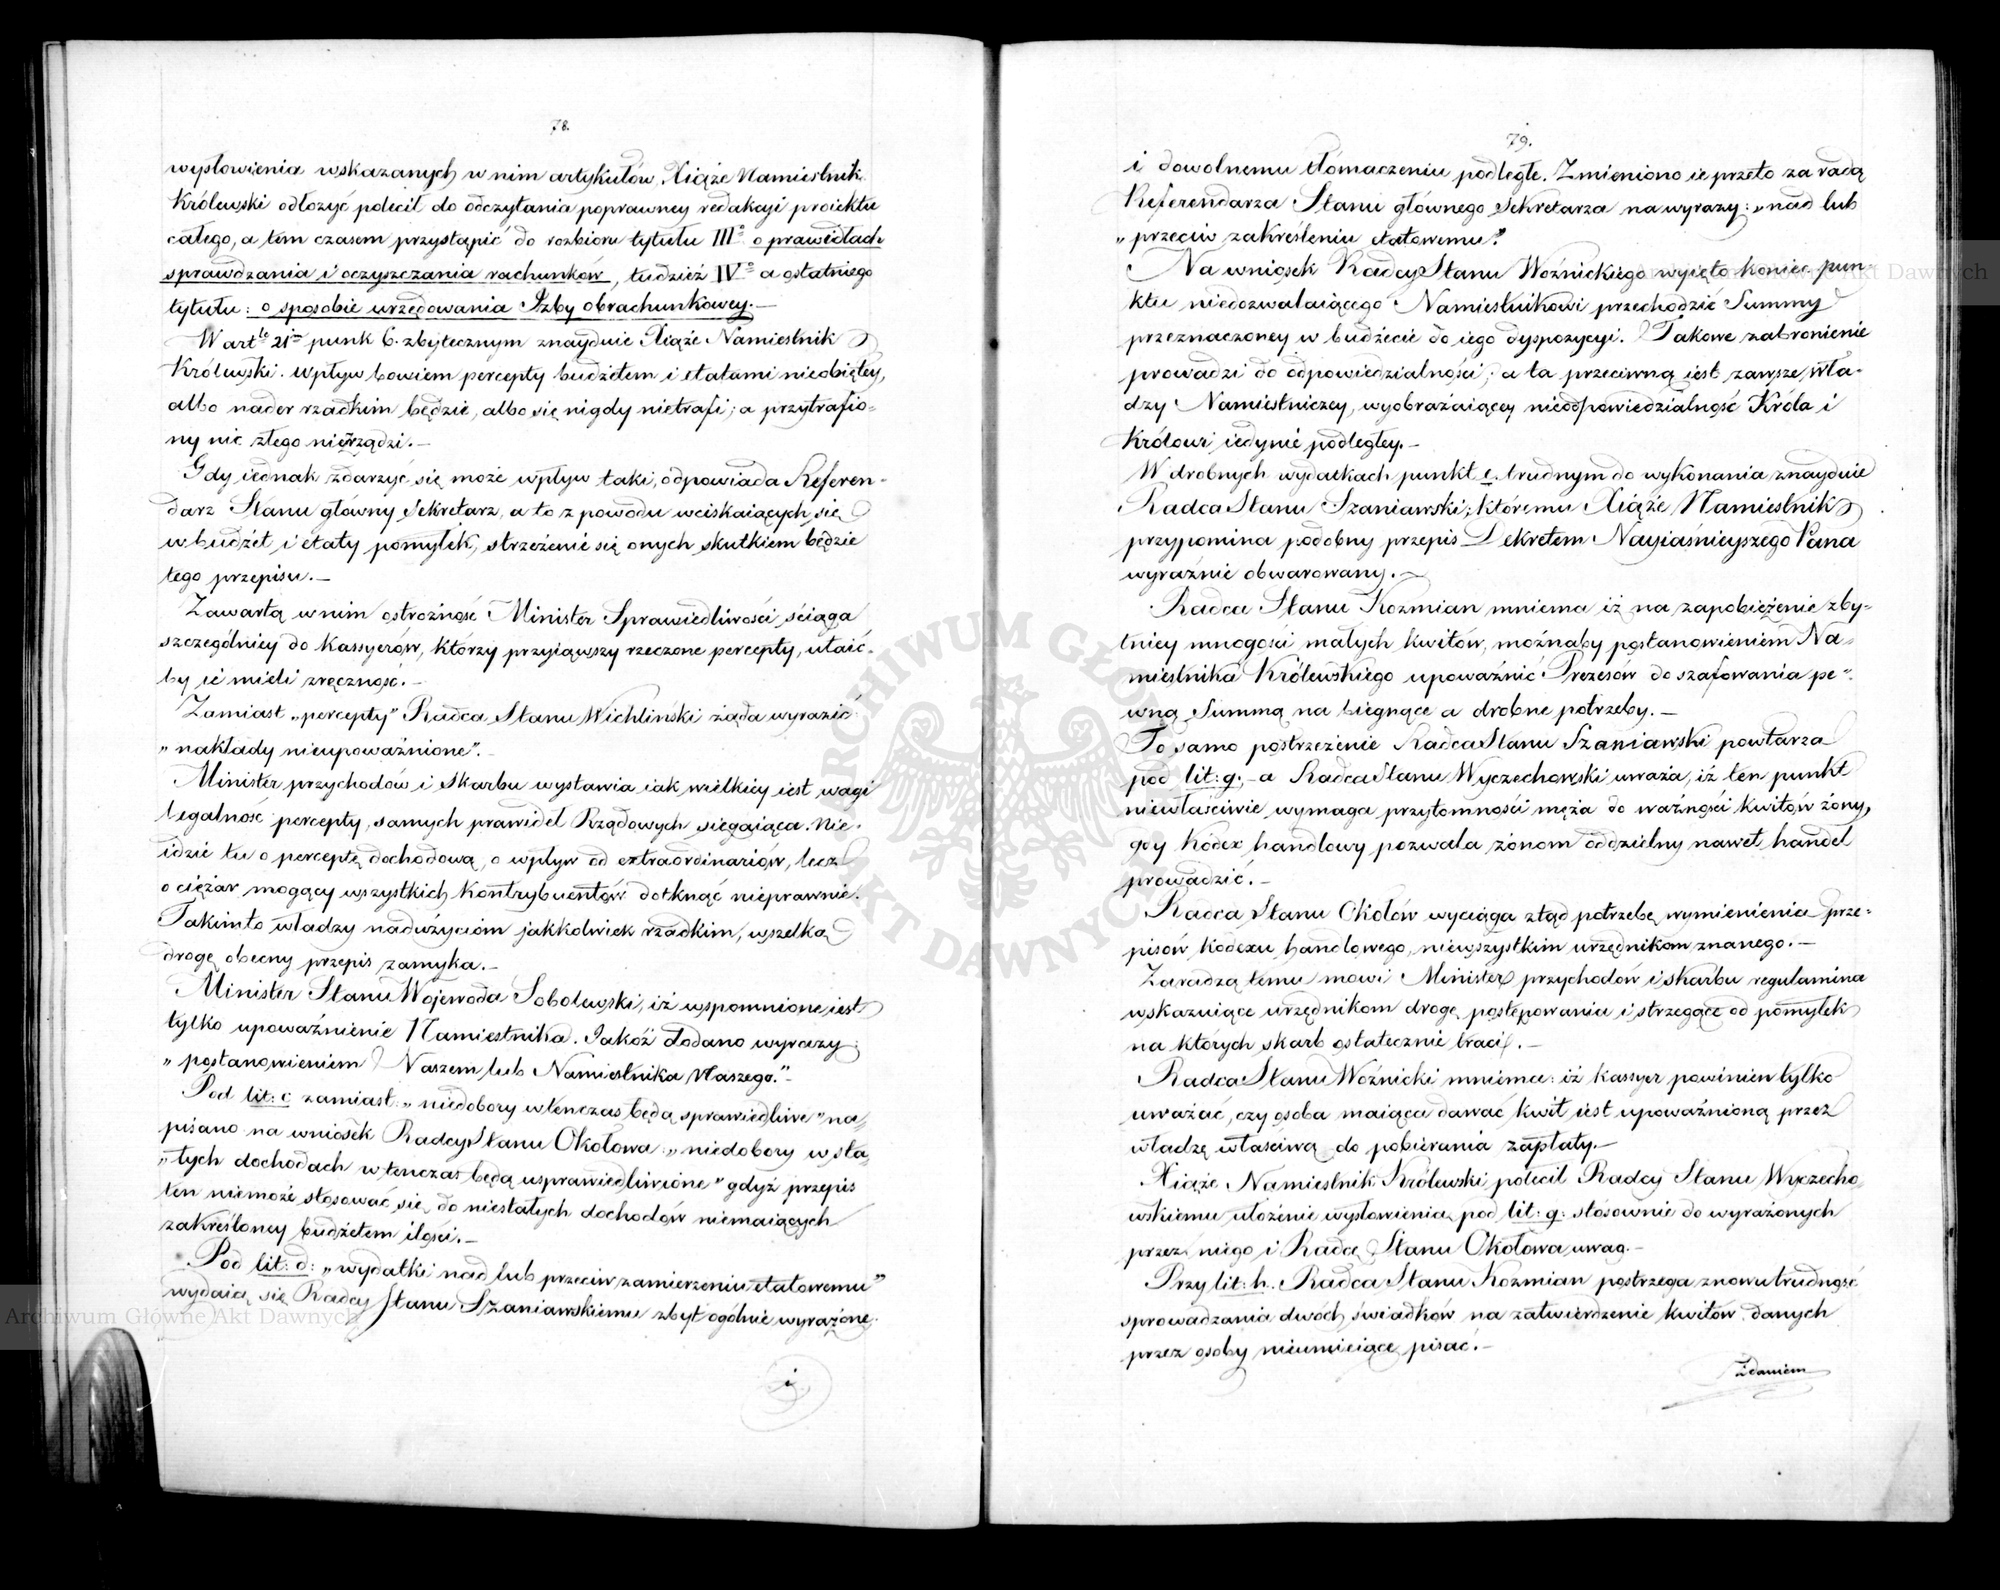 78.
wysłowienia wskazanych w nim artykułów, Xiąże Namiestnik
Królewski odłożyć polecił do odczytania poprawney redakcyi proiektu
całego, a tem czasem przystąpić do rozbioru tytułu IIIº o prawidłach
sprawdzania i oczyszczania rachunków, tudzież IVº a ostatniego
tytułu: o sposobie urzędowania Izby obrachunkowey.—
W artle 21m punk 6. zbytecznym znayduie Xiąże Namiestnik
Królewski. Wpływ bowiem percepty budżetem i etatami nieobiętey,
albo nader rzadkim będzie, albo się nigdy nietrafi; a przytrafio-
ny nic złego nierządzi.—
Gdy iednak zdarzyć się może wpływ taki, odpowiada Referen-
darz Stanu główny Sekretarz, a to z powodu wciskaiących się
w budżet i etaty pomyłek, strzeżenie się onych skutkiem będzie
tego przepisu.—
Zawartą w nim ostrożność Minister Sprawiedliwości ściąga
szczególniey do Kassyerów, którzy przyiąwszy rzeczone percepty, utaić-
by ié mieli zręczność.—
Zamiast „percepty" Radca Stanu Wichliński żąda wyrazić:
„nakłady nieupoważnione".—
Minister przychodów i Skarbu wystawia iak wielkiey iest wagi
legalność percepty, samych prawideł Rządowych sięgaiąca. Nie-
idzie tu o perceptę dochodową, o wpływ od extraordinariów, lecz
o ciężar mogący wszystkich kontrybuentów dotknąć nieprawnie.
Takimto władzy nadużyciom jakkolwiek rzadkim, wszelką
drogę obecny przepis zamyka.—
Minister Stanu Wojewoda Sobolewski, iż wspomnione iest
tylko upoważnienie Namiestnika. Jakóż dodano wyrazy:
„postanowieniem Naszem lub Namiestnika Naszego."—
Pod lit: c zamiast: „niedobory wtenczas będą sprawiedliwe" na-
pisano na wniosek Radcy Stanu Okołowa: „niedobory w sta-
„łych dochodach wtenczas będą usprawiedliwione" gdyż przepis
ten niemoże stosować się do niestałych dochodów niemaiących
zakreśloney budżetem ilości.—
Pod lit: d: „wydatki nad lub przeciw zamierzeniu etatowemu"
wydaią się Radcy Stanu Szaniawskiemu zbyt ogólnie wyrażone.
i
79.
i dowolnemu tłomaczeniu podległe. Zmieniono ie przeto za radą
Referendarza Stanu głównego Sekretarza na wyrazy: „nad lub
„przeciw zakreśleniu etatowemu".
Na wniosek Radcy Stanu Woźnickiego wyięto koniec pun-
ktu niedozwalaiącego Namiestnikowi przechodzić Summy
przeznaczoney w budżecie do iego dyspozycyi. Takowe zabronienie
prowadzi do odpowiedzialności; a ta przeciwną iest zawsze, wła-
dzy Namiestniczey, wyobrażaiącey nieodpowiedzialność Króla i
Królowi iedynie podległey.—
W drobnych wydatkach punkt e. trudnym do wykonania znayduie
Radca Stanu Szaniawski; któremu Xiąże Namiestnik
przypomina podobny przepis Dekretem Nayiaśnieyszego Pana
wyraźnie obwarowany.—
Radca Stanu Kozmian mniema iż na zapobieżenie zby-
tniey mnogości małych kwitów, możnaby postanowieniem Na-
miestnika Królewskiego upoważnić Prezesów do szafowania pe-
wną Summą na biegnące a drobne potrzeby.—
To samo postrzeżenie Radca Stanu Szaniawski powtarza
pod lit: g;— a Radca Stanu Wyczechowski uważa, iż ten punkt
niewłaściwie wymaga przytomności męża do ważności kwitów żony,
gdy Kodex handlowy pozwala żonom oddzielny nawet handel
prowadzić.—
Radca Stanu Okołów wyciąga ztąd potrzebę wymienienia prze-
pisów kodexu handlowego, niewszystkim urzędnikom znanego.—
Zaradzą temu mówi Minister przychodów i skarbu regulamina
wskazuiące urzędnikom drogę postępowania i strzegące od pomyłek
na których skarb ostatecznie traci.—
Radca Stanu Woźnicki mniema: iż kassyer powinien tylko
uważać, czy osoba maiąca dawać kwit iest upoważnioną przez
władzę właściwą do pobierania zapłaty.—
Xiąże Namiestnik Królewski polecił Radcy Stanu Wyczecho-
wskiemu ułożenie wysłowienia pod lit: g: stosownie do wyrażonych
przez niego i Radcę Stanu Okołowa uwag.—
Przy lit: h. Radca Stanu Kozmian postrzega znowu trudność
sprowadzania dwóch świadków na zatwierdzenie kwitów danych
przez osoby nieumieiące pisać.—
Zdaniem
Archiwum Główne Akt Dawnych
ARCHIWUM GŁÓWNE AKT DAWNYCH
Archiwum Główne Akt Dawnych